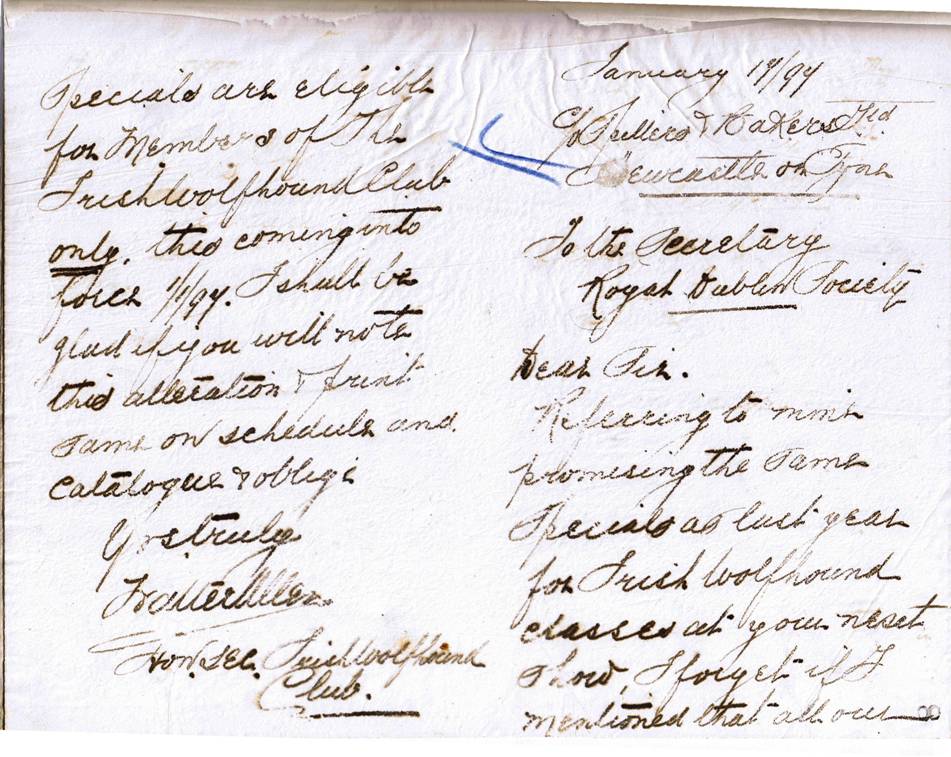 January 17/94
c/o Spillers & Bakers Ltd
Newcastle on Tyne
To the Secretary
Royal Dublin Society
Dear Sir.
Referring to mine
promising the same
Specials as last year
for Irish Wolfhound
classes at your next
Show, I forget if I
mentioned that all our
Specials are eligible
for Members of The
Irish Wolfhound Club
only, this coming into
force 1/1/94. I shall be
glad if you will note
this alteration & print
same on schedule and
catalogue & oblige
Yrs truly
Walter Allen.
Hon. Sec. Irish Wolfhound
Club.